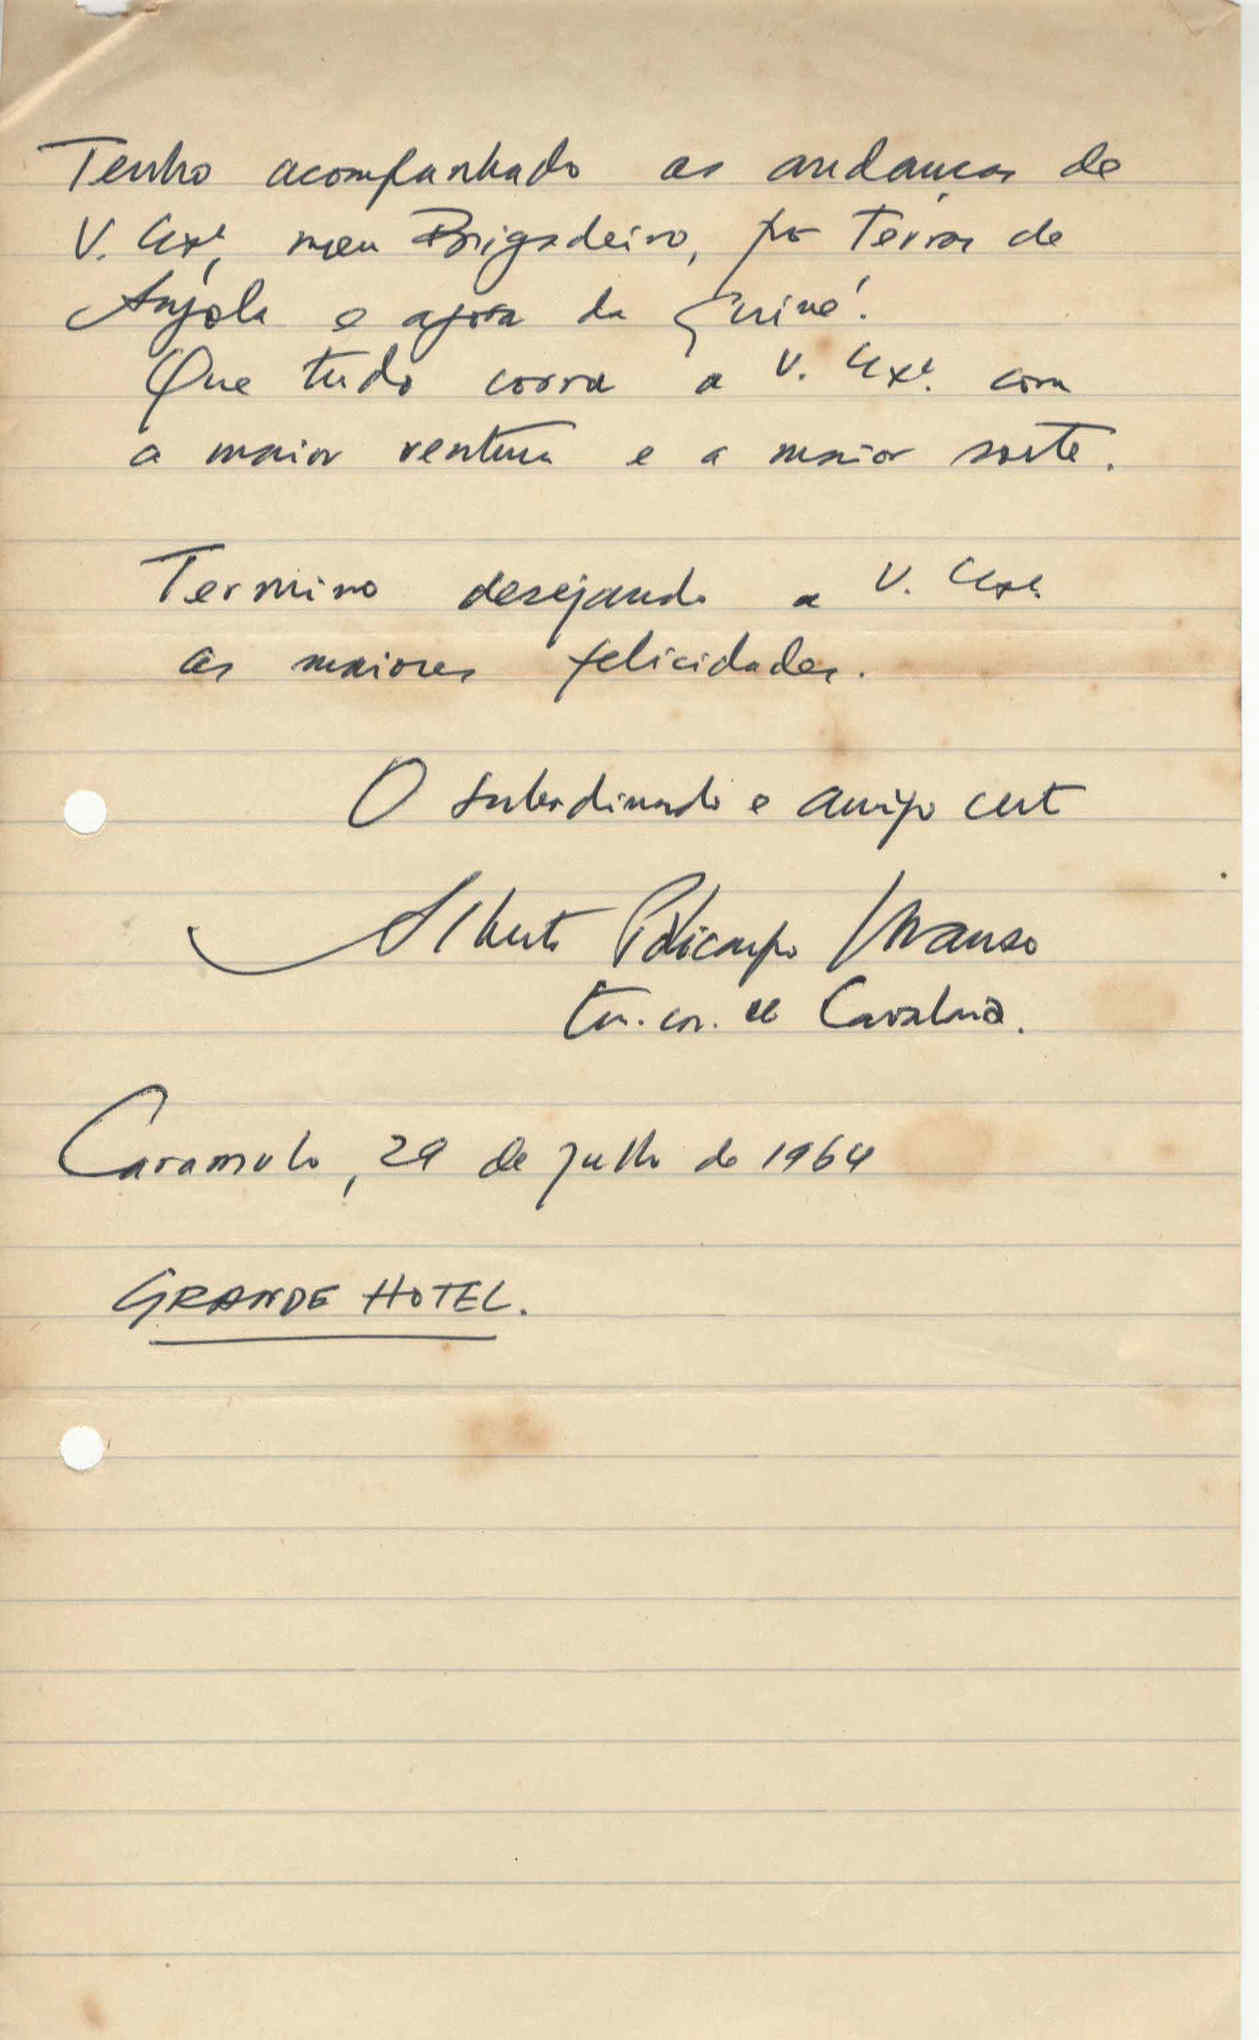 Tenho acompanhado as andanças de
V. Exª, meu Brigadeiro, por Terras de
Angola e agora da Guiné!
Que tudo corra a V. Exª. com
a maior ventura e a maior sorte.
Termino desejando a V. Exª.
as maiores felicidades.
O subordinado e amigo certo
Alberto Policarpo Manso
Ten. cor. de Cavalaria.
Caramulo, 29 de Julho de 1964
GRANDE HOTEL.